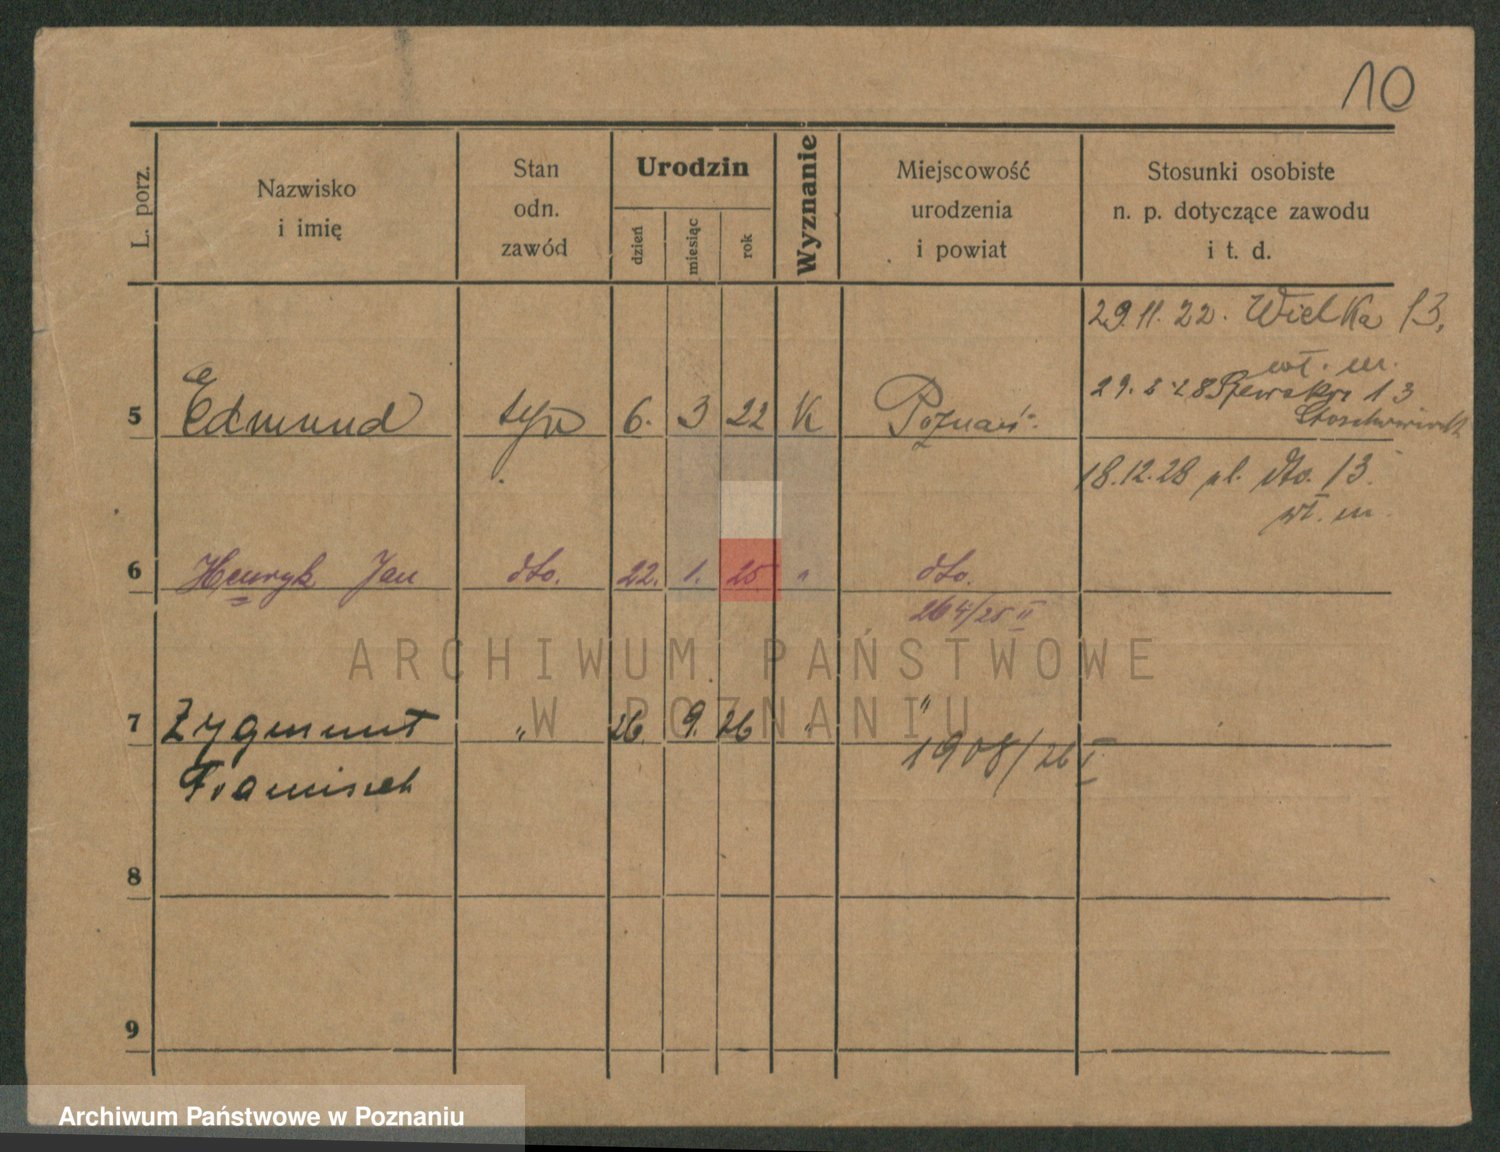 10
L. porz.
Nazwisko
i imię
Stan
odn.
zawód
Urodzin
dzień
miesiąc
rok
Wyznanie
Miejscowość
urodzenia
i powiat
Stosunki osobiste
n. p. dotyczące zawodu
i t. d.
29.11.22. Wielka 13,
wł. m.
5 Edmund syn 6. 3 22 K Poznań
13
18.12.28 pl. dto. 13.
wł. m.
6 Henryk Jan dto. 22. 1. 25 " dto.
264/25 II
ARCHIWUM PAŃSTWOWE
W POZNANIU
7 Zygmunt " 26. 9. 26 " "
1908/26 I
Franciszek
8
9
Archiwum Państwowe w Poznaniu